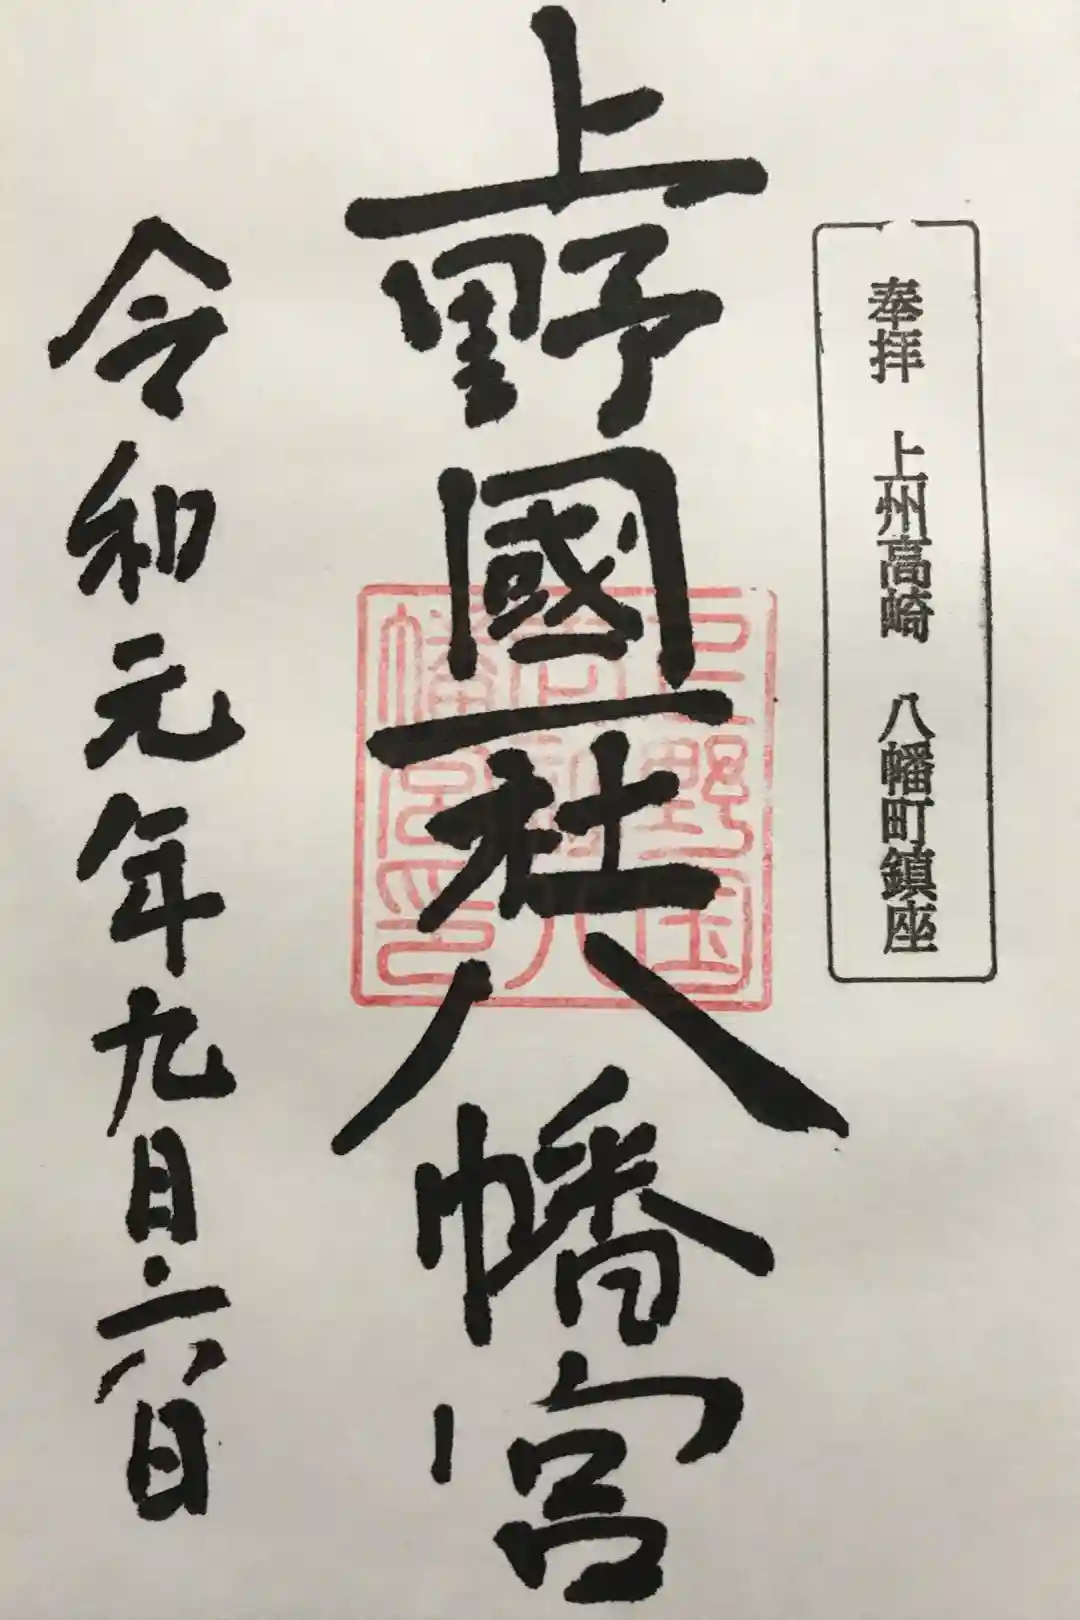 奉拝 上州高崎 八幡町鎮座
上野國一社八幡宮
令和元年九月六日
上野国
八
幡宮印